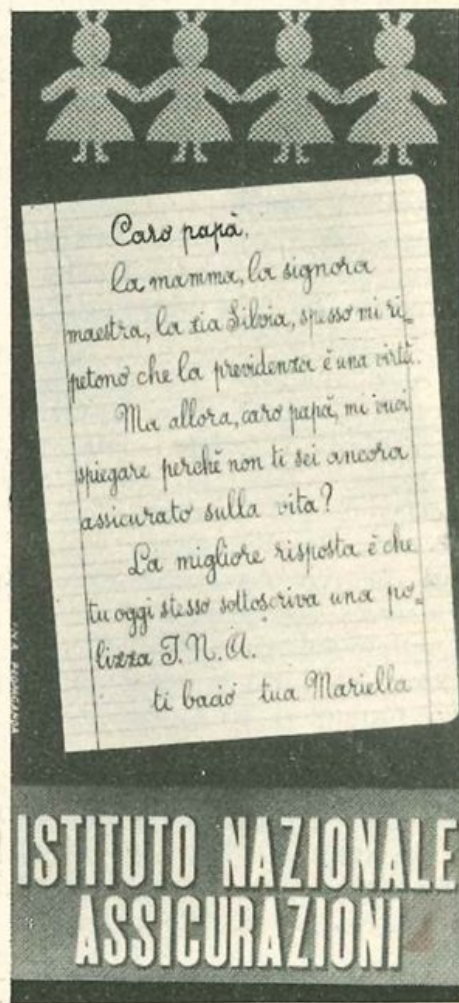 Caro papà,
la mamma, la signora
maestra, la zia Silvia, spesso mi ri-
petono che la previdenza è una virtù.
Ma allora, caro papà, mi vuoi
spiegare perchè non ti sei ancora
assicurato sulla vita?
La migliore risposta è che
tu oggi stesso sottoscriva una po-
lizza I.N.A.
ti bacio tua Mariella
ISTITUTO NAZIONALE
ASSICURAZIONI